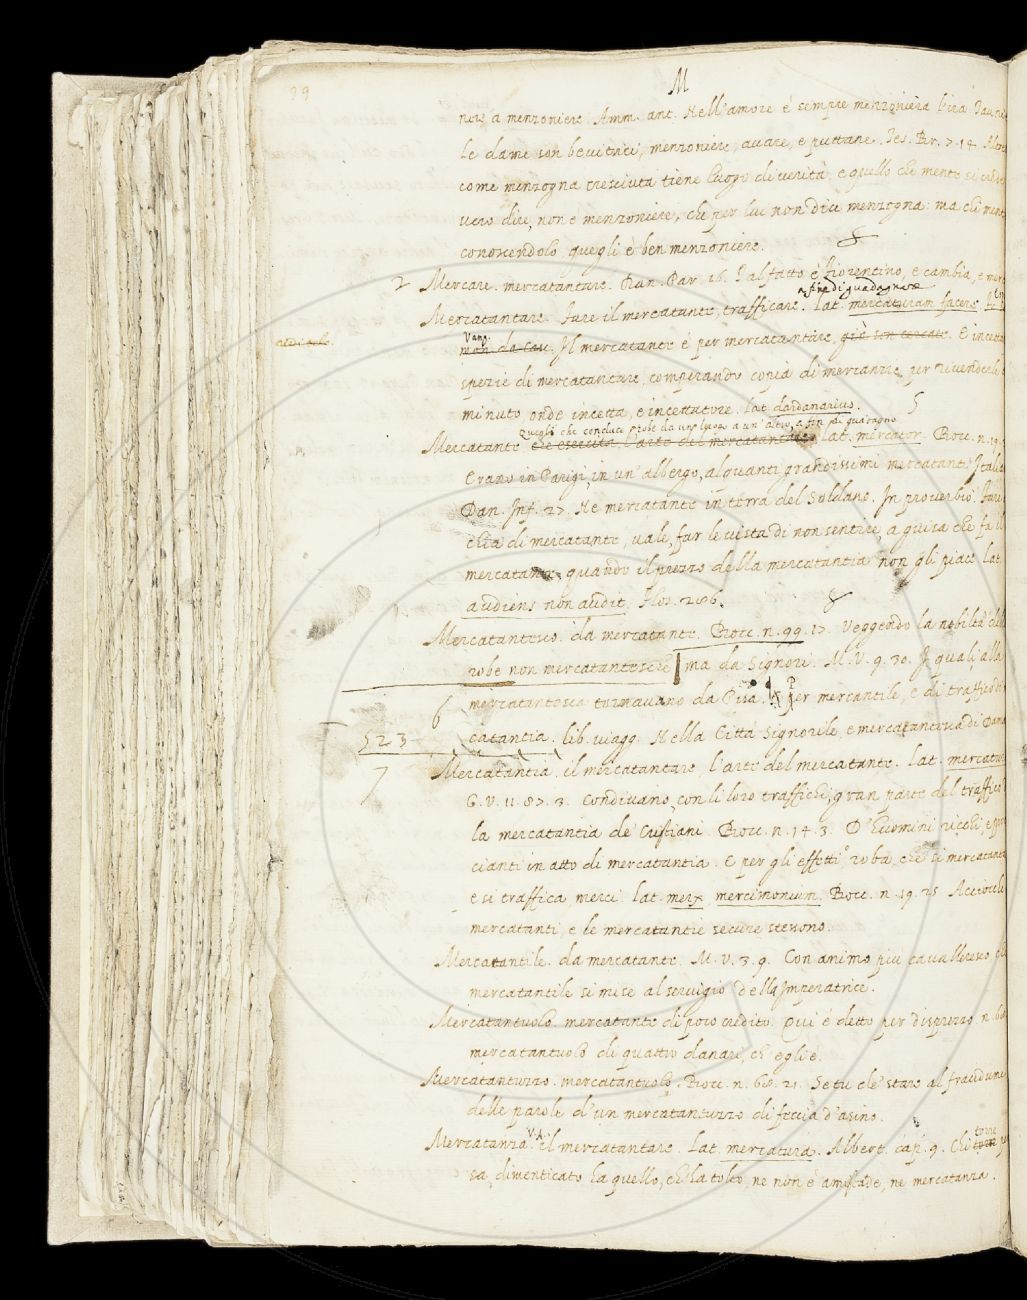 99
M
nere a menzoniere. Amm. ant. Nell'amore è sempre menzoniera l'ira
Le dame son bevitrici, menzoniere, avare, e puttane. Tes. Br. 7. 14
come menzogna cresciuta tiene luogo di verità, e quello che mente si crede
vero dire, non è menzoniere, che per lui non dice menzogna: ma chi mente
conoscendolo quegli è ben menzoniere.
2 Mercare. mercatantare. Dan. Par. 16. Tal fatto è fiorentino, e cambia, e merca
a fine di guadagnare
Mercatantare. Fare il mercatante, trafficare. lat. mercaturam facere.
vedi solo.
Vang.
non da Cav. Il mercatante è per mercatantare, già son cercate. E incetta
spezie di mercatantare, comperando copia di mercanzie, per rivenderle
minuto, onde incetta, e incettatore. lat. dardanarius. 5
Quegli che conduce robe da un luogo a un altro, a fin di guadagno
Mercatante. che esercita l'arte del mercatantare. lat. mercator. Bocc. n. 19.
Erano in Parigi, in un albergo, alquanti grandissimi mercatanti Italia
Dan. Inf. 27. Ne mercatante in terra del Soldano. In proverbio. Fare
chia di mercatante, vale, far le vista di non sentire, a guisa che fa il
mercatante, quando il prezzo della mercatantia non gli piace lat.
audiens non audit. Flos. 286.
Mercatantesco. da mercatante. Bocc. n. 99. 17. Veggendo la nobiltà del
robe non mercatantesche ma da Signori. M. V. 9. 30. I quali alla
mercatantesca tornavano da Pisa. Per mercantile, e di traffico di
6
catantia. lib. viagg. Nella Città Signorile, e mercatantesca di
523
7
Mercatantia. il mercatantare, l'arte del mercatante. lat. mercatura
G. V. 11. 87. 3. Condivano, con li loro traffichi, gran parte del traffico
la mercatantia de' Cristiani. Bocc. n. 14. 3. D'uomini ricchi, e
cianti in atto di mercatantia. E per gli effetti, o roba, che si mercatanta
e si traffica, merci. lat. merx mercimonium. Bocc. n. 19. 25
mercatanti, e le mercatantie secure stessono.
Mercatantile. da mercatante. M. V. 3. 9. Con animo più cavalleresco
mercatantile si mise al servigio della Imperatrice.
Mercatantuolo. mercatante di poco credito. Qui è detto per disprezzo
mercatantuolo di quattro danari, ch'egli è.
Mercatantuzzo. mercatantuolo. Bocc. n. 68. 21. Se tu dè stare al fracidume
delle parole d'un mercatantuzzo di feccia d'asino.
V.A.
torre
Mercatanza. il mercatantare. Lat. mercatura. Albert. cap. 9. Chi
sa, dimenticato ha quello, ch'ha tolto, ne non è amistade, ne mercatanza.